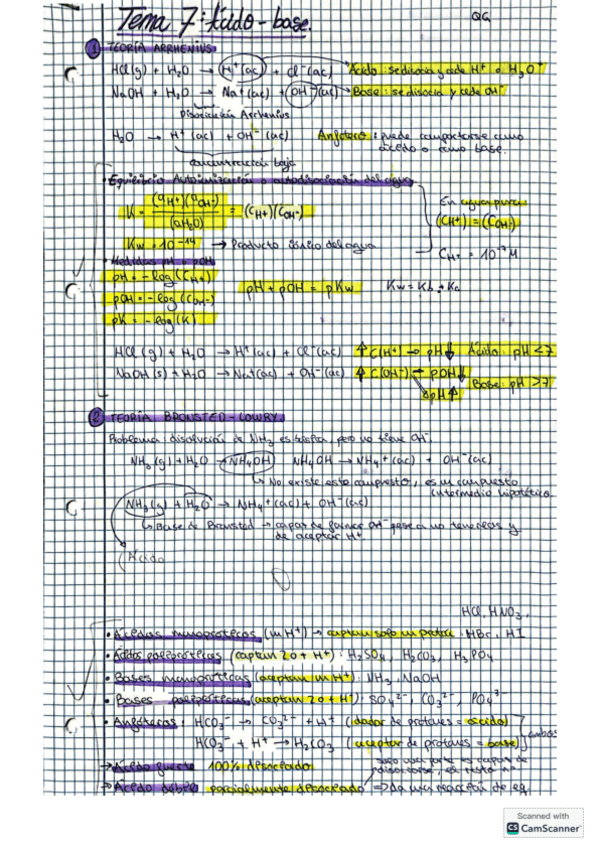 Tema 7: Ácido-base.
QG
1 TEORÍA ARRHENIUS
HCl(g) + H₂O → H⁺(ac) + Cl⁻(ac) Ácido: se disocia y cede H⁺ o H₃O⁺
NaOH + H₂O → Na⁺(ac) + OH⁻(ac) → Base: se disocia y cede OH⁻
Disociación Arrhenius
H₂O → H⁺(ac) + OH⁻(ac) Anfótero: puede comportarse como
ácido o como base.
concentración baja
• Equilibrio Autoionización o autodisociación del agua
K = (aH⁺)(aOH⁻) / (aH₂O) = (CH⁺)(COH⁻)
En agua pura
(CH⁺) = (COH⁻)
Kw = 10⁻¹⁴ → Producto iónico del agua
CH⁺ = 10⁻⁷ M
• Medidas pH y pOH
pH = -log(CH⁺)
pOH = -log(COH⁻) pH + pOH = pKw Kw = Kb · Ka
pK = -log(K)
HCl(g) + H₂O → H⁺(ac) + Cl⁻(ac) ↑C(H⁺) → pH↓ Ácido: pH < 7
NaOH(s) + H₂O → Na⁺(ac) + OH⁻(ac) ↑C(OH⁻) → pOH↓
pH↑ Base: pH > 7
2 TEORÍA BRONSTED-LOWRY
Problema: disolución de NH₃ es básica, pero no tiene OH⁻
NH₃(g) + H₂O → NH₄OH NH₄OH → NH₄⁺(ac) + OH⁻(ac)
↳ No existe este compuesto, es un compuesto
intermedio hipotético.
NH₃(g) + H₂O → NH₄⁺(ac) + OH⁻(ac)
↳ Base de Bronsted → capaz de formar OH⁻ pese a no tenerlos y
de aceptar H⁺
Ácido
HCl, HNO₃,
• Ácidos monopróticos (un H⁺) → captan solo un protón: HBr, HI
• Ácidos polipróticos (captan 2 o + H⁺): H₂SO₄, H₂CO₃, H₃PO₄
• Bases monopróticas (aceptan un H⁺): NH₃, NaOH
• Bases polipróticas (aceptan 2 o + H⁺): SO₄²⁻, CO₃²⁻, PO₄³⁻
• Anfóteros: HCO₃⁻ → CO₃²⁻ + H⁺ (dador de protones = ácido)
HCO₃⁻ + H⁺ → H₂CO₃ (aceptor de protones = base) ambos
→ Ácido fuerte 100% disociado
solo una parte es capaz de
disociarse, el resto no
→ Ácido débil parcialmente disociado ⇒ da una reacción de eq.
Scanned with
CS CamScanner